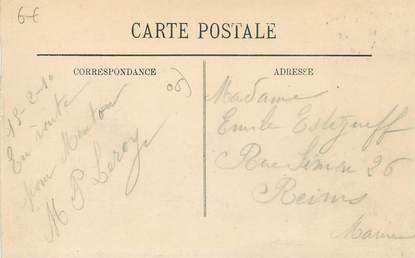 6€
CARTE POSTALE
CORRESPONDANCE
ADRESSE
(06)
13-2-10
En route
pour Menton
M P Leroy
Madame
Emile
Rue Simon 26
Reims
Marne